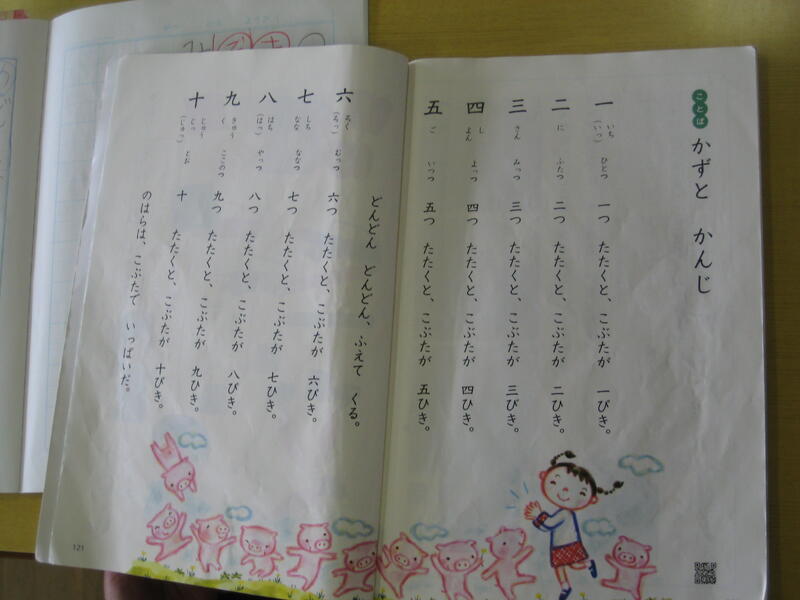 ことば
かずと かんじ
一 いち （いっ） ひとつ 一つ たたくと、こぶたが 一ぴき。
二 に ふたつ 二つ たたくと、こぶたが 二ひき。
三 さん みっつ 三つ たたくと、こぶたが 三びき。
四 し よん よっつ 四つ たたくと、こぶたが 四ひき。
五 ご いつつ 五つ たたくと、こぶたが 五ひき。
どんどん どんどん、ふえて くる。
六 ろく （ろっ） むっつ 六つ たたくと、こぶたが 六ぴき。
七 しち なな ななつ 七つ たたくと、こぶたが 七ひき。
八 はち （はっ） やっつ 八つ たたくと、こぶたが 八ぴき。
九 きゅう く ここのつ 九つ たたくと、こぶたが 九ひき。
十 じゅう じっ （じゅっ） とお 十 たたくと、こぶたが 十ぴき。
のはらは、こぶたで いっぱいだ。
121